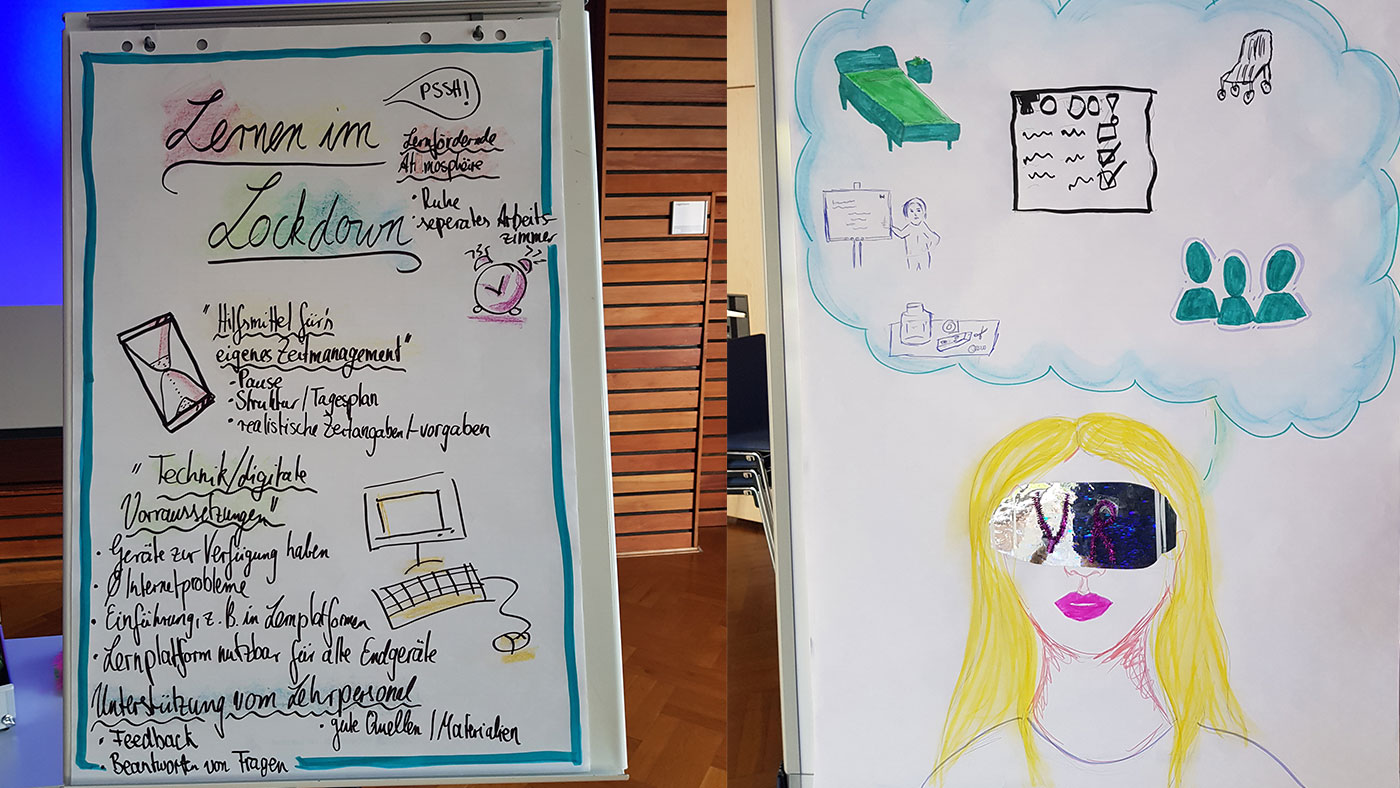 Lernen im
Lockdown
PSSH!
Lernfördernde
Atmosphäre
· Ruhe
· seperates Arbeits-
zimmer
"Hilfsmittel für's
eigenes Zeitmanagement"
· Pause
· Struktur / Tagesplan
· realistische Zeitangaben/-vorgaben
"Technik/digitale
Vorraussetzungen"
· Geräte zur Verfügung haben
· Ø Internetprobleme
· Einführung, z.B. in Lernplatformen
· Lernplatform nutzbar für alle Endgeräte
Unterstützung vom Lehrpersonal
· Feedback
· gute Quellen / Materialien
· Beantworten von Fragen
VR